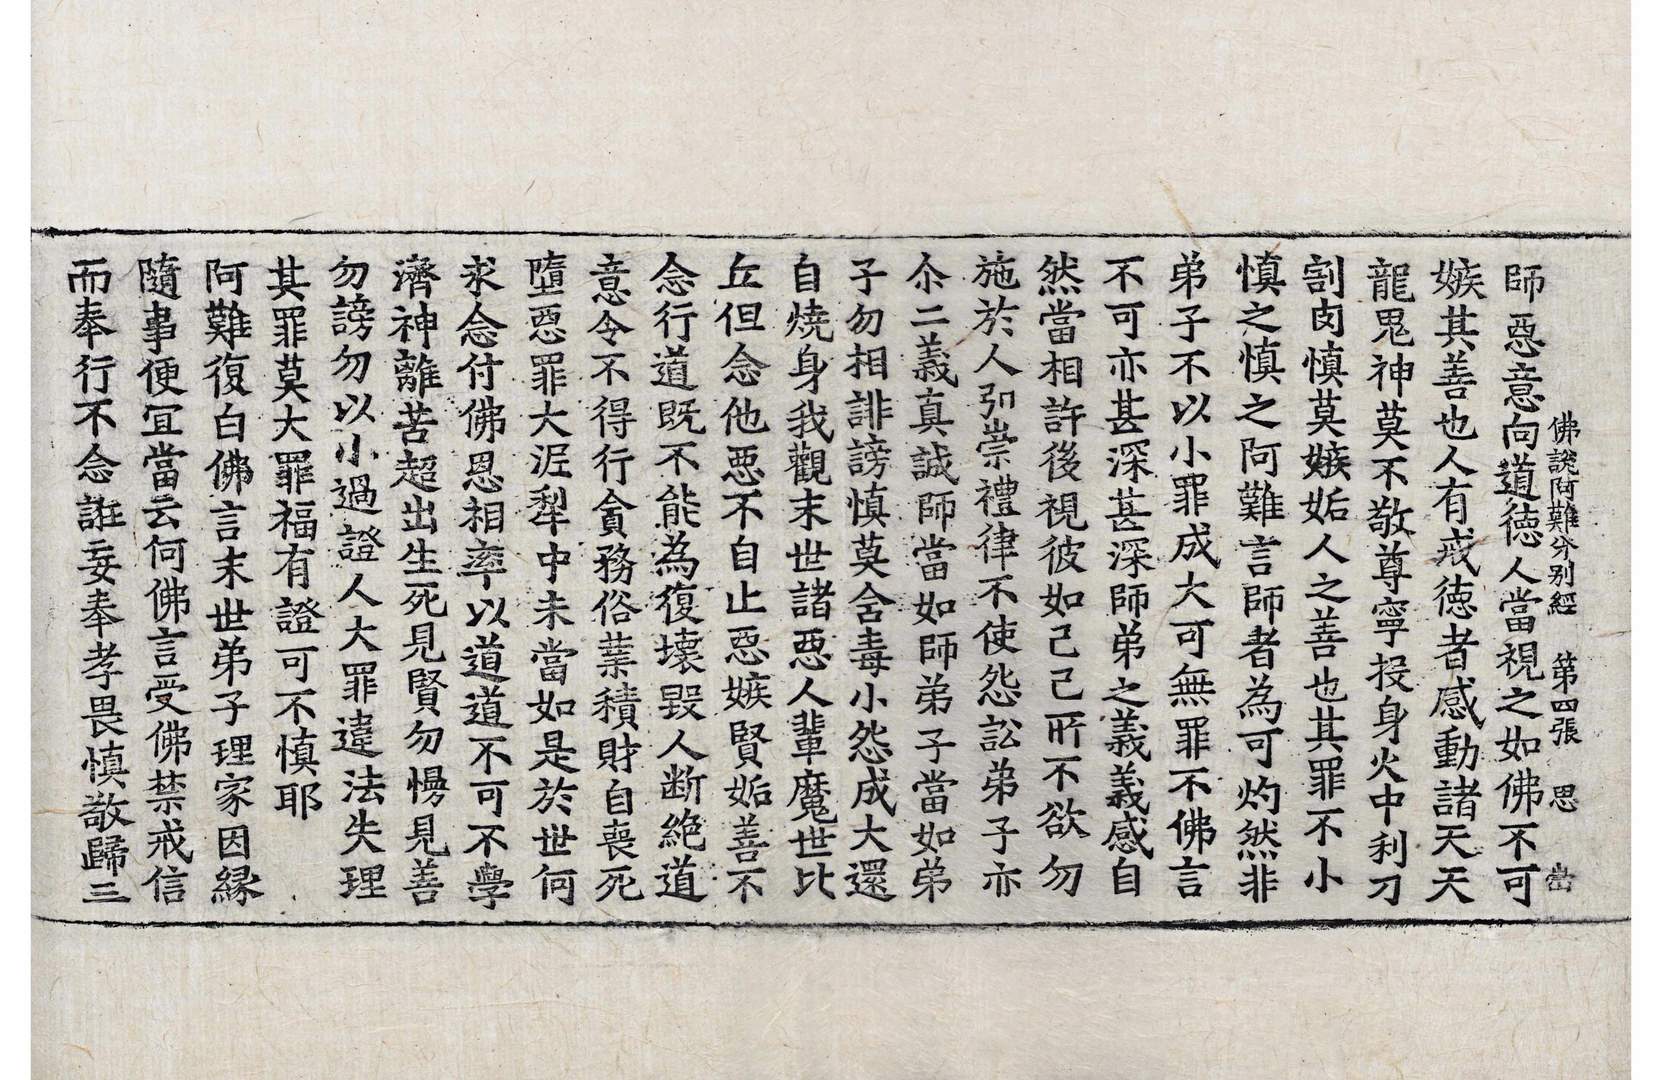 佛說阿難分別經 第四張 思
師惡意向道德人當視之如佛不可
嫉其善也人有戒德者感動諸天天
龍鬼神莫不敬尊寧投身火中利刀
割肉慎莫嫉妬人之善也其罪不小
慎之慎之阿難言師者為可灼然非
弟子不以小罪成大可無罪不佛言
不可亦甚深甚深師弟之義義感自
然當相許後視彼如己己所不欲勿
施於人弘崇禮律不使怨訟弟子亦
尒二義真誠師當如師弟子當如弟
子勿相誹謗慎莫含毒小怨成大還
自燒身我觀末世諸惡人輩魔世比
丘但念他惡不自止惡嫉賢妬善不
念行道既不能為復壞毀人斷絶道
意令不得行貪務俗業積財自喪死
墮惡罪大泥犁中未當如是於世何
求念付佛恩相率以道道不可不學
濟神離苦超出生死見賢勿慢見善
勿謗勿以小過證人大罪違法失理
其罪莫大罪福有證可不慎耶
阿難復白佛言末世弟子理家因緣
隨事便宜當云何佛言受佛禁戒信
而奉行不念誑妄奉孝畏慎敬歸三